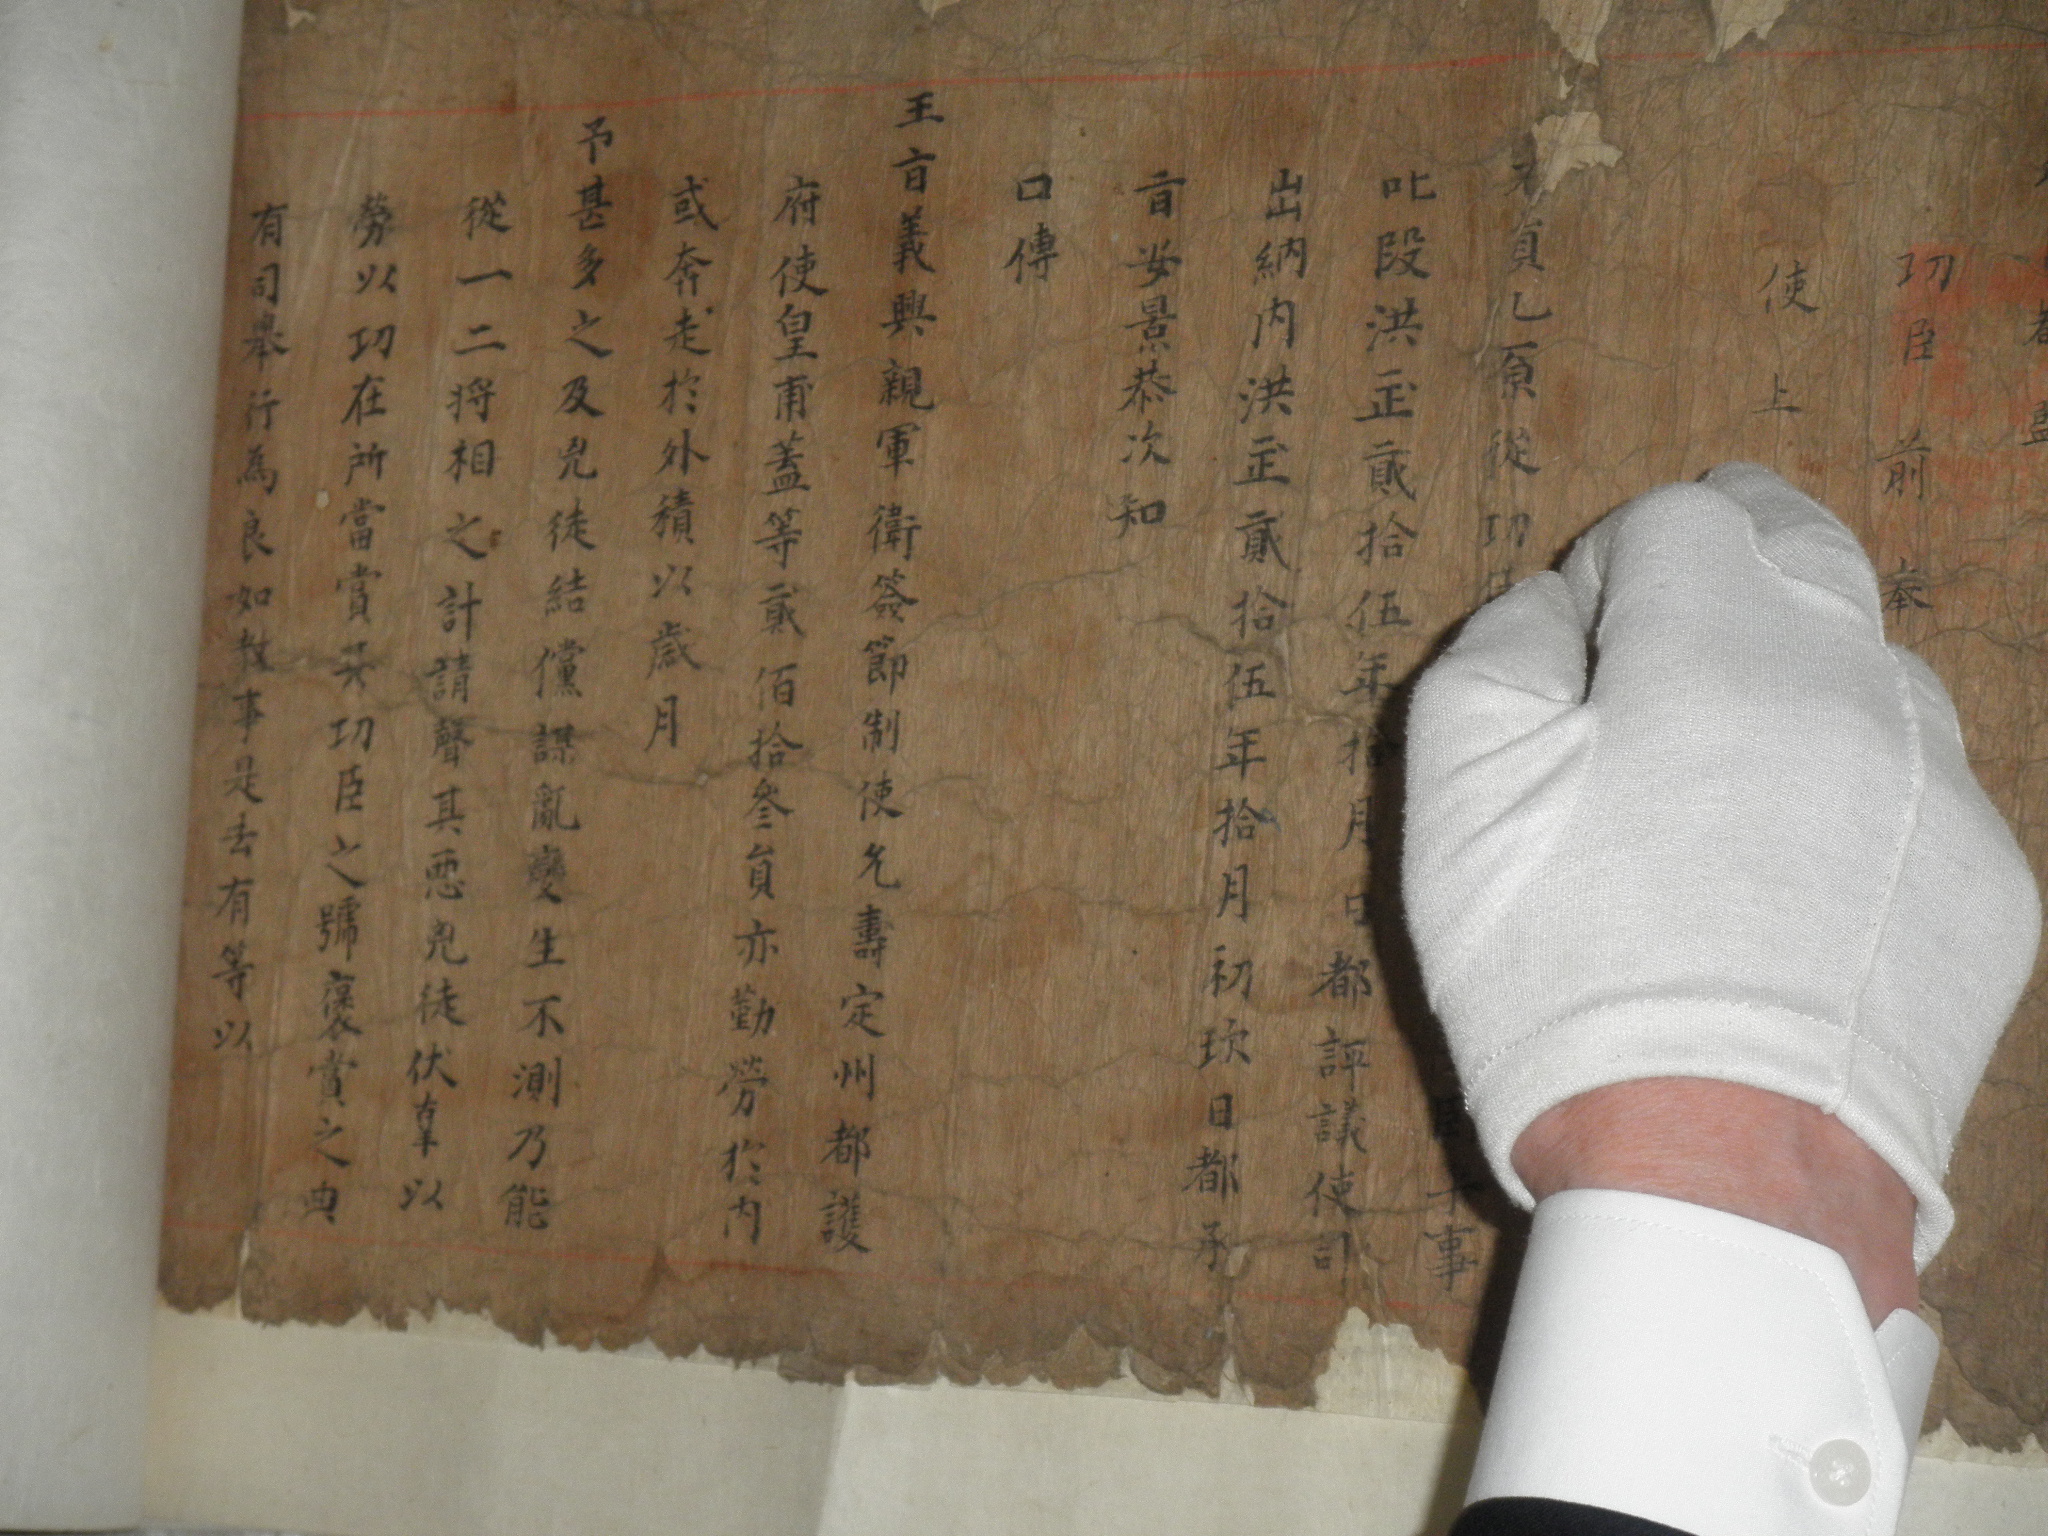 都
功臣 前 奉
使 上
貞 乙 原 從 功
叱 段 洪 正 貳 拾 伍 年 拾 月 日 都 評 議 使 司
出 納 內 洪 正 貳 拾 伍 年 拾 月 初 玖 日 都 承
旨 安 景 恭 次 知
口 傳
王 旨 義 興 親 軍 衛 簽 節 制 使 允 壽 定 州 都 護
府 使 皇 甫 蓋 等 貳 佰 拾 叄 員 亦 勤 勞 於 內
或 奔 走 於 外 積 以 歲 月
予 甚 多 之 及 兇 徒 結 儻 謀 亂 變 生 不 測 乃 能
從 一 二 將 相 之 計 請 聲 其 惡 兇 徒 伏 辜 以
勞 以 功 在 所 當 賞 其 功 臣 之 號 褒 賞 之 典
有 司 擧 行 爲 良 如 敎 事 是 去 有 等 以